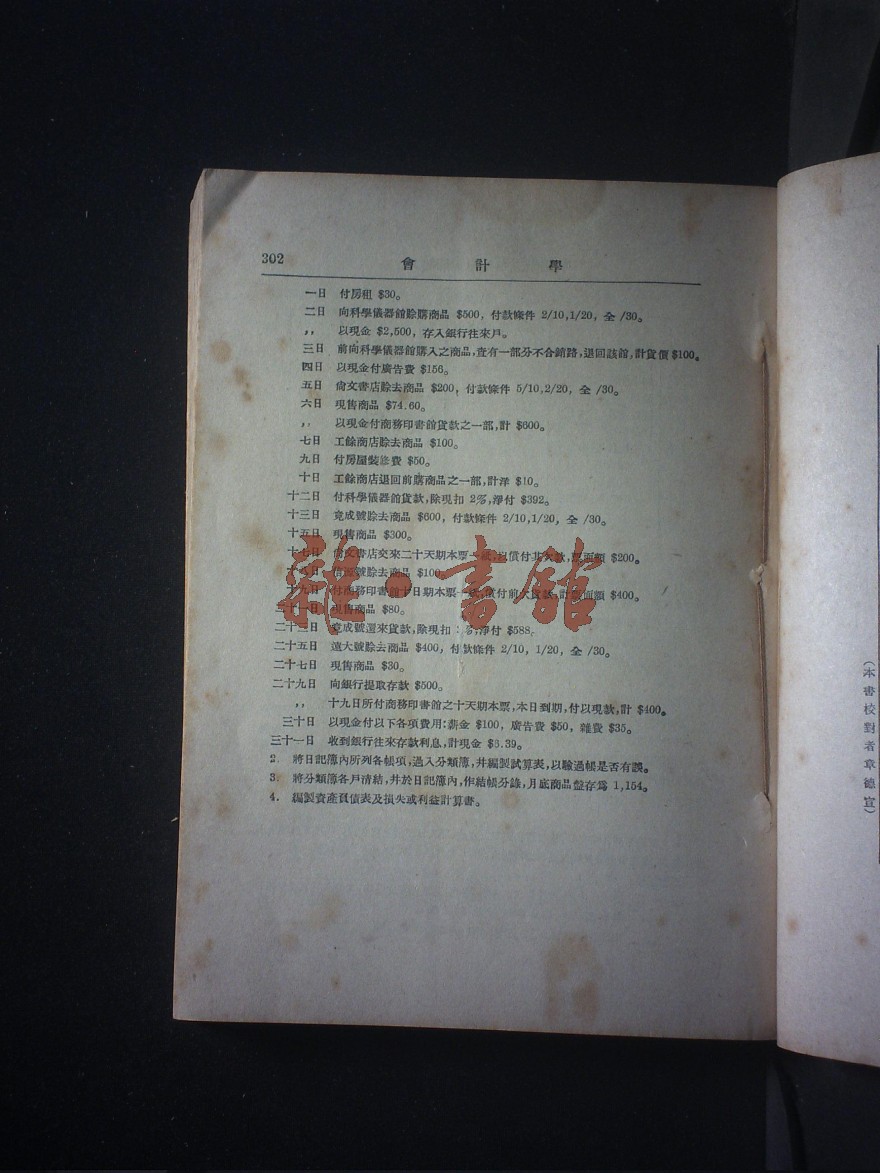 302
會計學
一日 付房租 $30。
二日 向科學儀器館賒購商品 $500, 付款條件 2/10,1/20, 全 /30。
,, 以現金 $2,500, 存入銀行往來戶。
三日 前向科學儀器館購入之商品,查有一部分不合銷路,退回該館,計貨價 $100。
四日 以現金付廣告費 $156。
五日 尙文書店賒去商品 $200, 付款條件 5/10,2/20, 全 /30。
六日 現售商品 $74.60。
,, 以現金付商務印書館貨款之一部,計 $600。
七日 工餘商店賒去商品 $100。
九日 付房屋裝修費 $50。
十日 工餘商店退回前購商品之一部,計洋 $10。
十二日 付科學儀器館貨款,除現扣 2%,淨付 $392。
十三日 竟成號賒去商品 $600, 付款條件 2/10,1/20, 全 /30。
十五日 現售商品 $300。
十七日 尙文書店交來二十天期本票一紙,以償付其欠款,票面額 $200。
號賒去商品 $100
十九日 付商務印書館十日期本票一紙,償付前欠貨款,計票面額 $400。
二十一日 現售商品 $80。
二十三日 竟成號還來貨款,除現扣 淨付 $588。
二十五日 遠大號賒去商品 $400, 付款條件 2/10, 1/20, 全 /30。
二十七日 現售商品 $30。
二十九日 向銀行提取存款 $500。
,, 十九日所付商務印書館之十天期本票,本日到期,付以現款,計 $400。
三十日 以現金付以下各項費用:薪金 $100, 廣告費 $50, 雜費 $35。
三十一日 收到銀行往來存款利息,計現金 $3.39。
2. 將日記簿內所列各帳項,過入分類簿,幷編製試算表,以驗過帳是否有誤。
3. 將分類簿各戶清結,幷於日記簿內,作結帳分錄,月底商品盤存爲 1,154。
4. 編製資產負債表及損失或利益計算書。
雜·書館
(本書校對者章德宣)